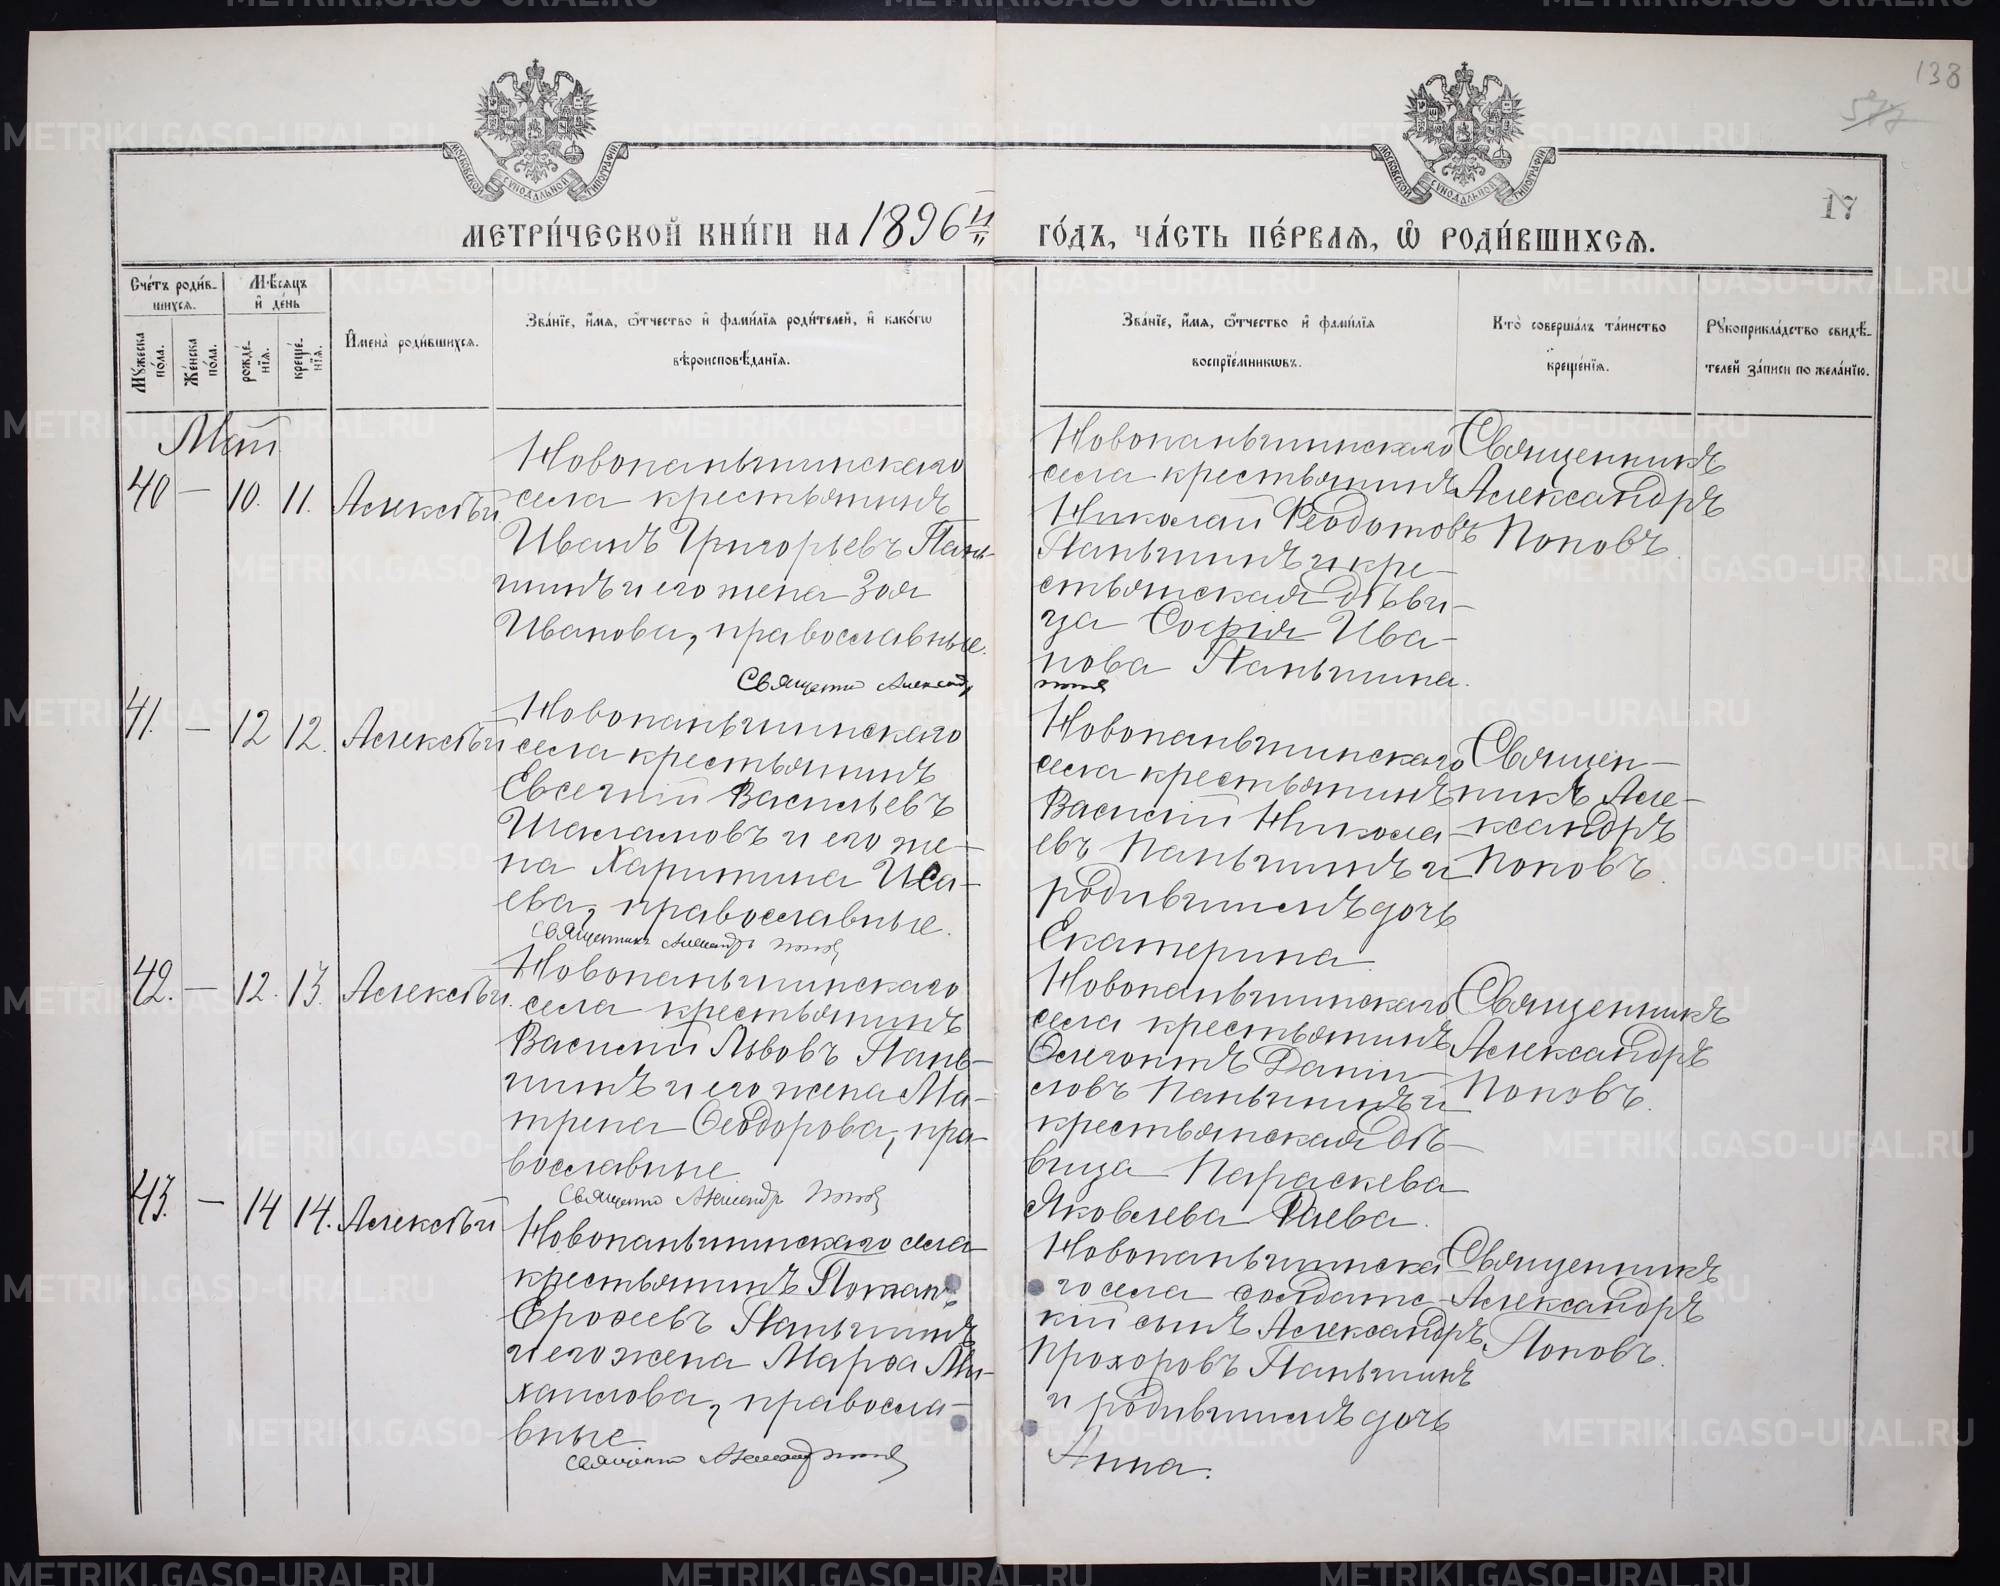 138
577
17
МОСКОВСКОЙ СУНОДАЛЬНОЙ ТИПОГРАФІИ
МОСКОВСКОЙ СУНОДАЛЬНОЙ ТИПОГРАФІИ
МЕТРИ́ЧЕСКОЙ КНИ́ГИ НА 1896й ГО́ДЪ, ЧА́СТЬ ПЕ́РВАЯ, Ѡ РОДИ́ВШИХСЯ.
Сче́тъ роди́в-
шихся.
Му́жеска по́ла.
Же́нска по́ла.
Мѣ́сяцъ
и҆ де́нь
рожде́-
нїя.
креще́-
нїя.
И҆мена̀ роди́вшихся.
Зва́нїе, и҆́мя, ѻ҆́тчество и҆ фами́лїя роди́телей, и҆ како́гѡ
вѣроисповѣ́данїя.
Зва́нїе, и҆́мя, ѻ҆́тчество и҆ фами́лїя
воспрїе́мникѡвъ.
Кто̀ соверша́лъ та́инство
креще́нїя.
Рꙋкоприкла́дство свидѣ́-
телей за́писи по жела́нїю.
Май
40 — 10. 11. Алексѣй
Новопаньшинскаго
села крестьянинъ
Иванъ Григорьевъ Пань-
шинъ и его жена Зоя
Иванова, православные.
Священ Александр
Новопаньшинскаго
села крестьянинъ
Николай Ѳеодотовъ
Паньшинъ и кре-
стьянская дѣви-
ца Софія Ива-
нова Паньшина.
Попов
Священникъ
Александръ
Поповъ.
41. — 12 12. Алексѣй
Новопаньшинскаго
села крестьянинъ
Евсегній Васильевъ
Шаламовъ и его же-
на Харитина Иса-
ева, православные.
Священник Александръ Попов
Новопаньшинскаго
села крестьянинъ
Василій Никола-
евъ Паньшинъ и
родившимъ дочь
Екатерина.
Священ-
никъ Але-
ксандръ
Поповъ.
42. — 12. 13. Алексѣй.
Новопаньшинскаго
села крестьянинъ
Василій Львовъ Пань-
шинъ и его жена Ма-
трена Ѳеодорова, пра-
вославные.
Священ Александр Попов
Новопаньшинскаго
села крестьянинъ
Ѳлегонтъ Дани-
ловъ Паньшинъ и
крестьянская дѣ-
вица Параскева
Яковлева Раева.
Священникъ
Александръ
Поповъ.
43. — 14 14. Алексѣй
Новопаньшинскаго села
крестьянинъ Потап
Ероѳеевъ Паньшинъ
и его жена Марѳа Ми-
хаилова, правосла-
вные
священ Александр Попов
Новопаньшинска
го села солдатс-
кій сынъ Александръ
Прохоровъ Паньшинъ
и родившимъ дочь
Анна.
Священникъ
Александръ
Поповъ.
METRIKI.GASO-URAL.RU